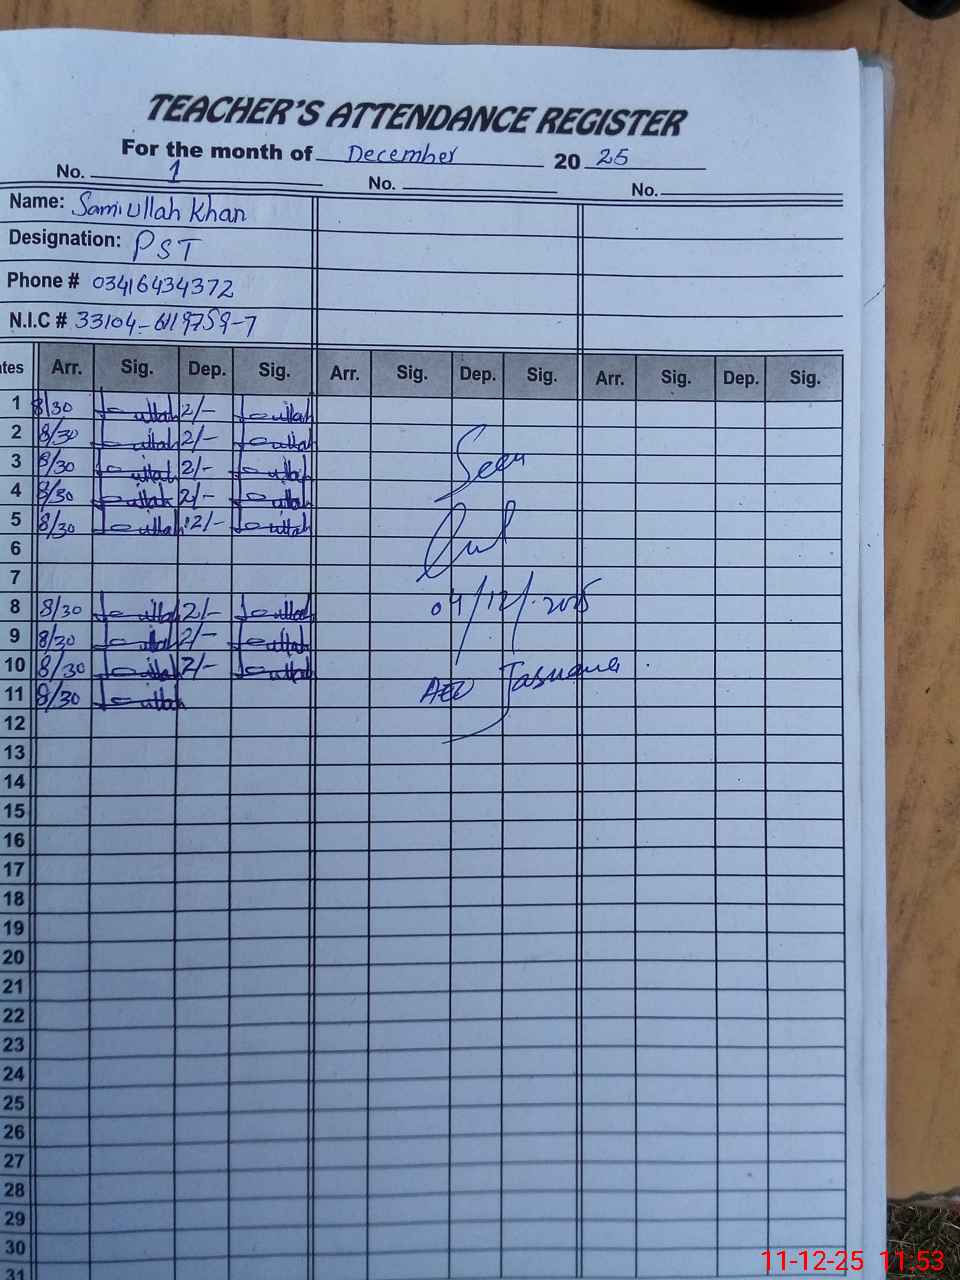 TEACHER'S ATTENDANCE REGISTER
For the month of December 2025
No. 1 No. No.
Name: Sami ullah Khan
Designation: PST
Phone # 03416434372
N.I.C # 33104-6119759-7
tes Arr. Sig. Dep. Sig. Arr. Sig. Dep. Sig. Arr. Sig. Dep. Sig.
1 8/30 ullah 2/- ullah
2 8/30 ullah 2/- ullah
3 8/30 ullah 2/- ullah
4 8/30 ullah 2/- ullah
5 8/30 ullah 12/- ullah
6
7
8 8/30 ullah 2/- ullah
9 8/30 ullah 2/- ullah
10 8/30 ullah 2/- ullah
11 8/30 ullah
12
13
14
15
16
17
18
19
20
21
22
23
24
25
26
27
28
29
30
31
Seen
04/12/.2025
AEO Jasuana
11-12-25 11:53